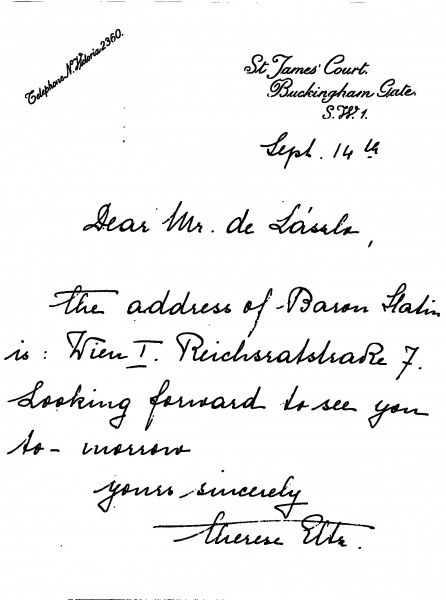 Telephone N. Victoria 2360.
St. James' Court.
Buckingham Gate.
S.W.1.
Sept. 14th
Dear Mr. de László,
the address of Baron Slatin
is: Wien I. Reichsratstraße 7.
Looking forward to see you
to-morrow
yours sincerely
Therese Eltz.